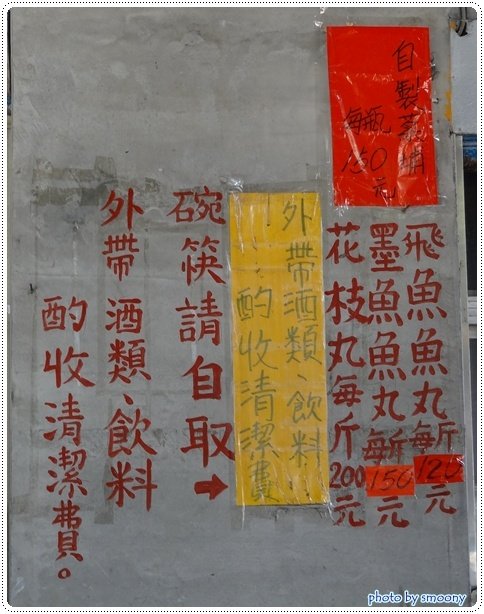 自製菜埔
每瓶
150元
飛魚魚丸每斤120元
墨魚魚丸每斤150元
花枝丸每斤200元
外帶酒類、飲料
酌收清潔費
碗筷請自取→
外帶酒類、飲料
酌收清潔費。
photo by smoony